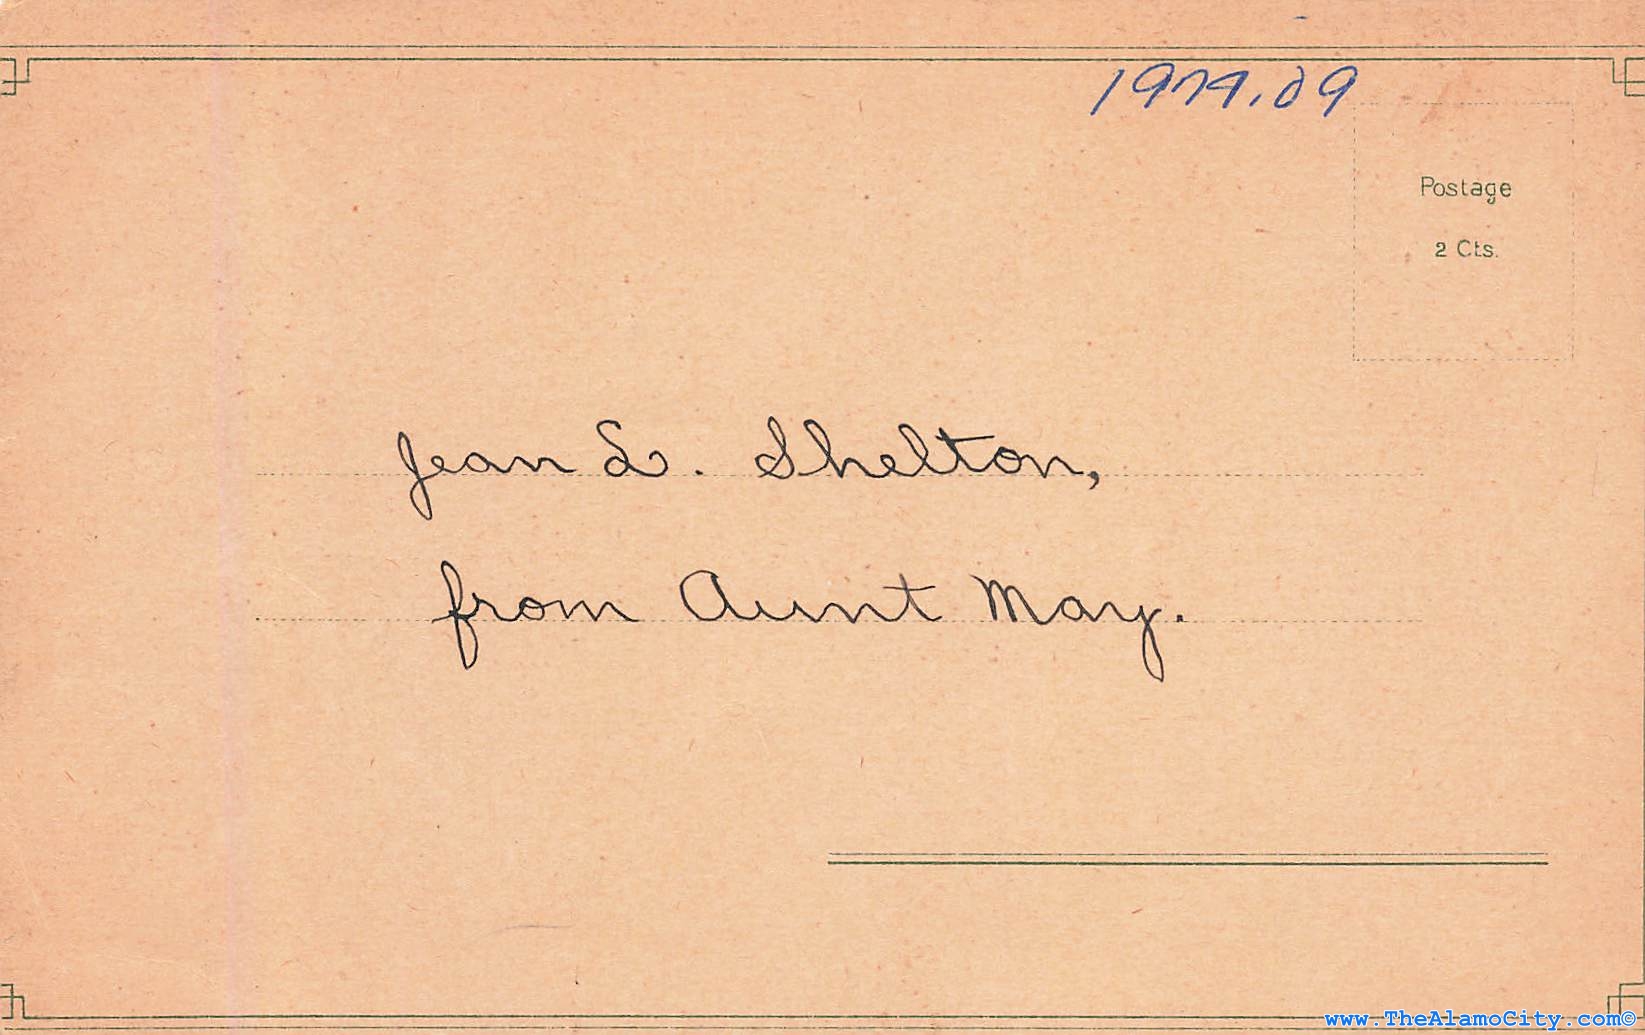 1979.09
Postage
2 Cts.
Jean L. Shelton,
from Aunt May.
www.TheAlamoCity.com©